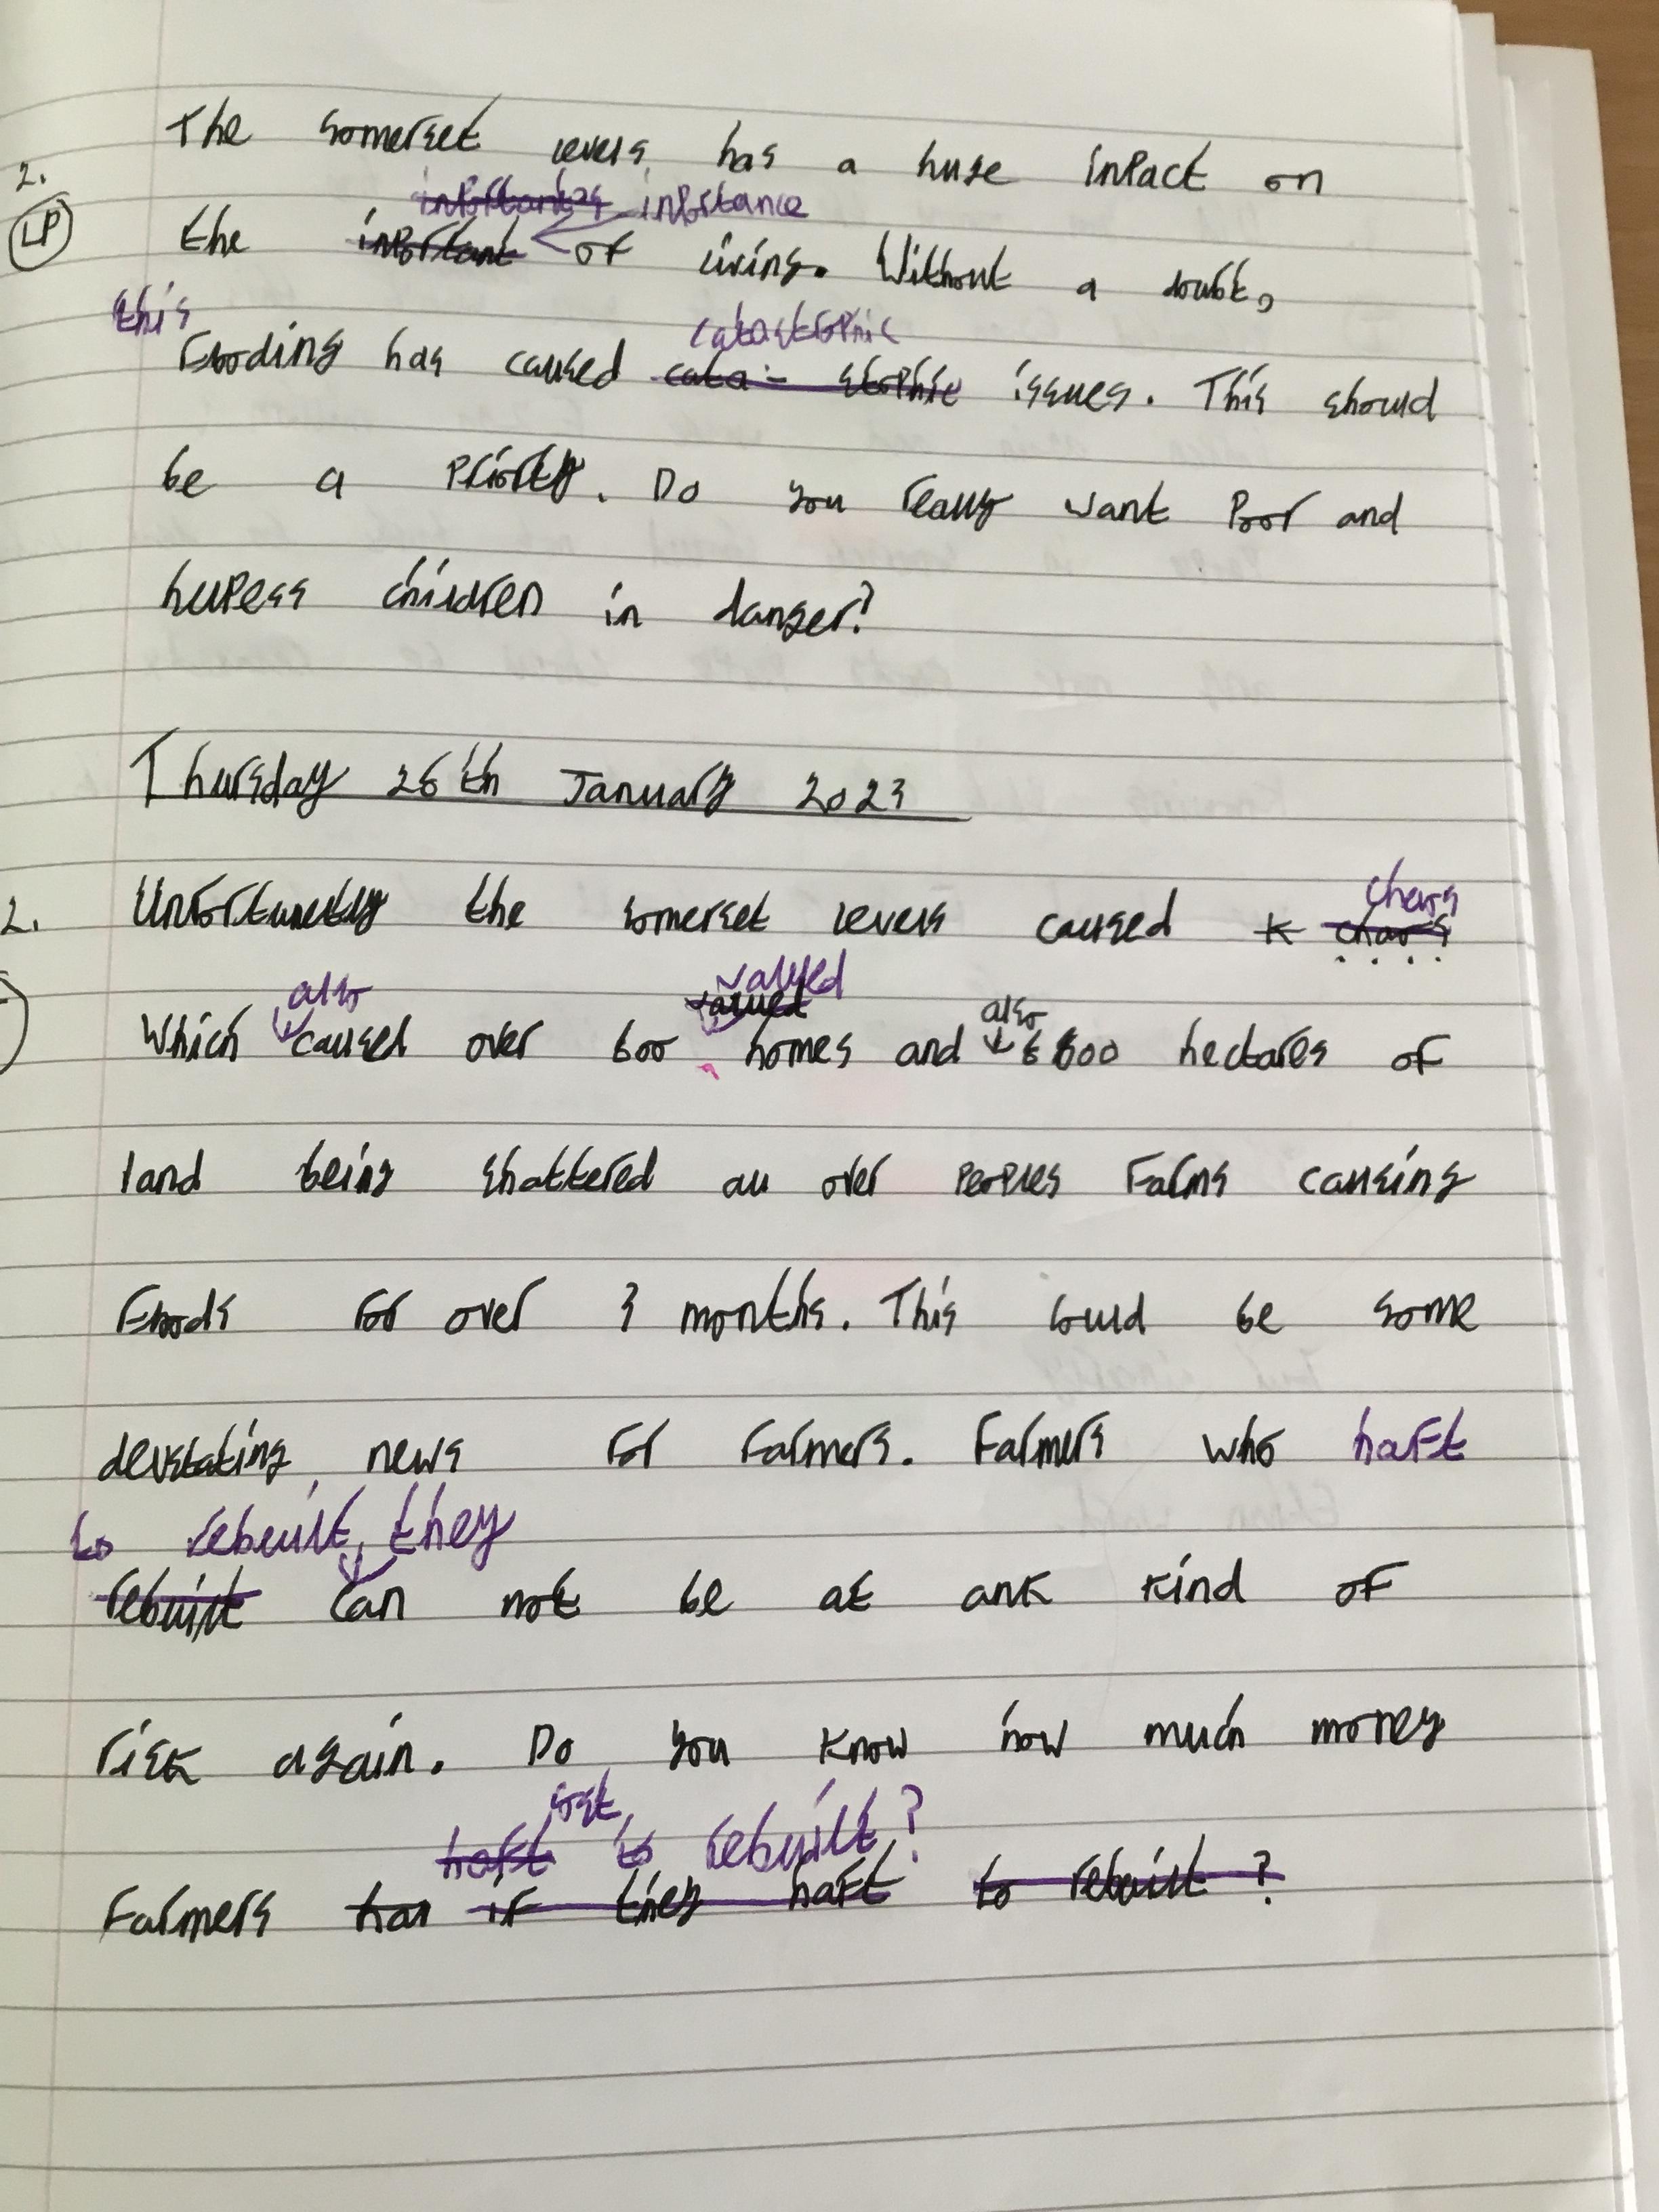 The somerset levels has a huge inpact on
2.
inportantes inportance
LP
the inportant of living. Without a doubt,
this
catastrophic
Flooding has caused cata- strophic issues. This should
be a priority. Do you really want Poor and
hulpess children in danger?
Thursday 26th January 2023
chaos
2. Unfortunetly the somerset levels caused chaos
also valued also
valued
Which caused over 600 homes and 6800 hectares of
land being shattered all over peoples Farms causing
Floods for over 3 months. This could be some
devstating news for Farmers. Farmers who haft
to rebuilt, they
rebuilt can not be at ank kind of
risk again. Do you know how much money
lost
haft to rebuilt?
Farmers has if they haft to rebuilt?